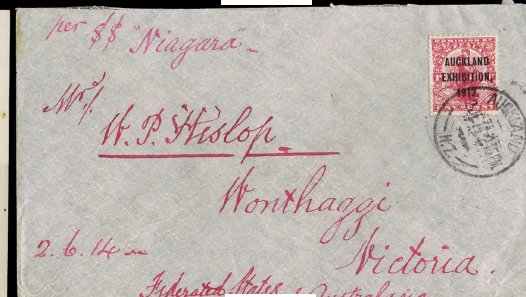 per SS "Niagara"
AUCKLAND
EXHIBITION,
1913.
AUCKLAND
N.Z.
Mrs.
W. P. Heslop.
Wonthaggi
2.6.14
Victoria.
Federated States
Australia